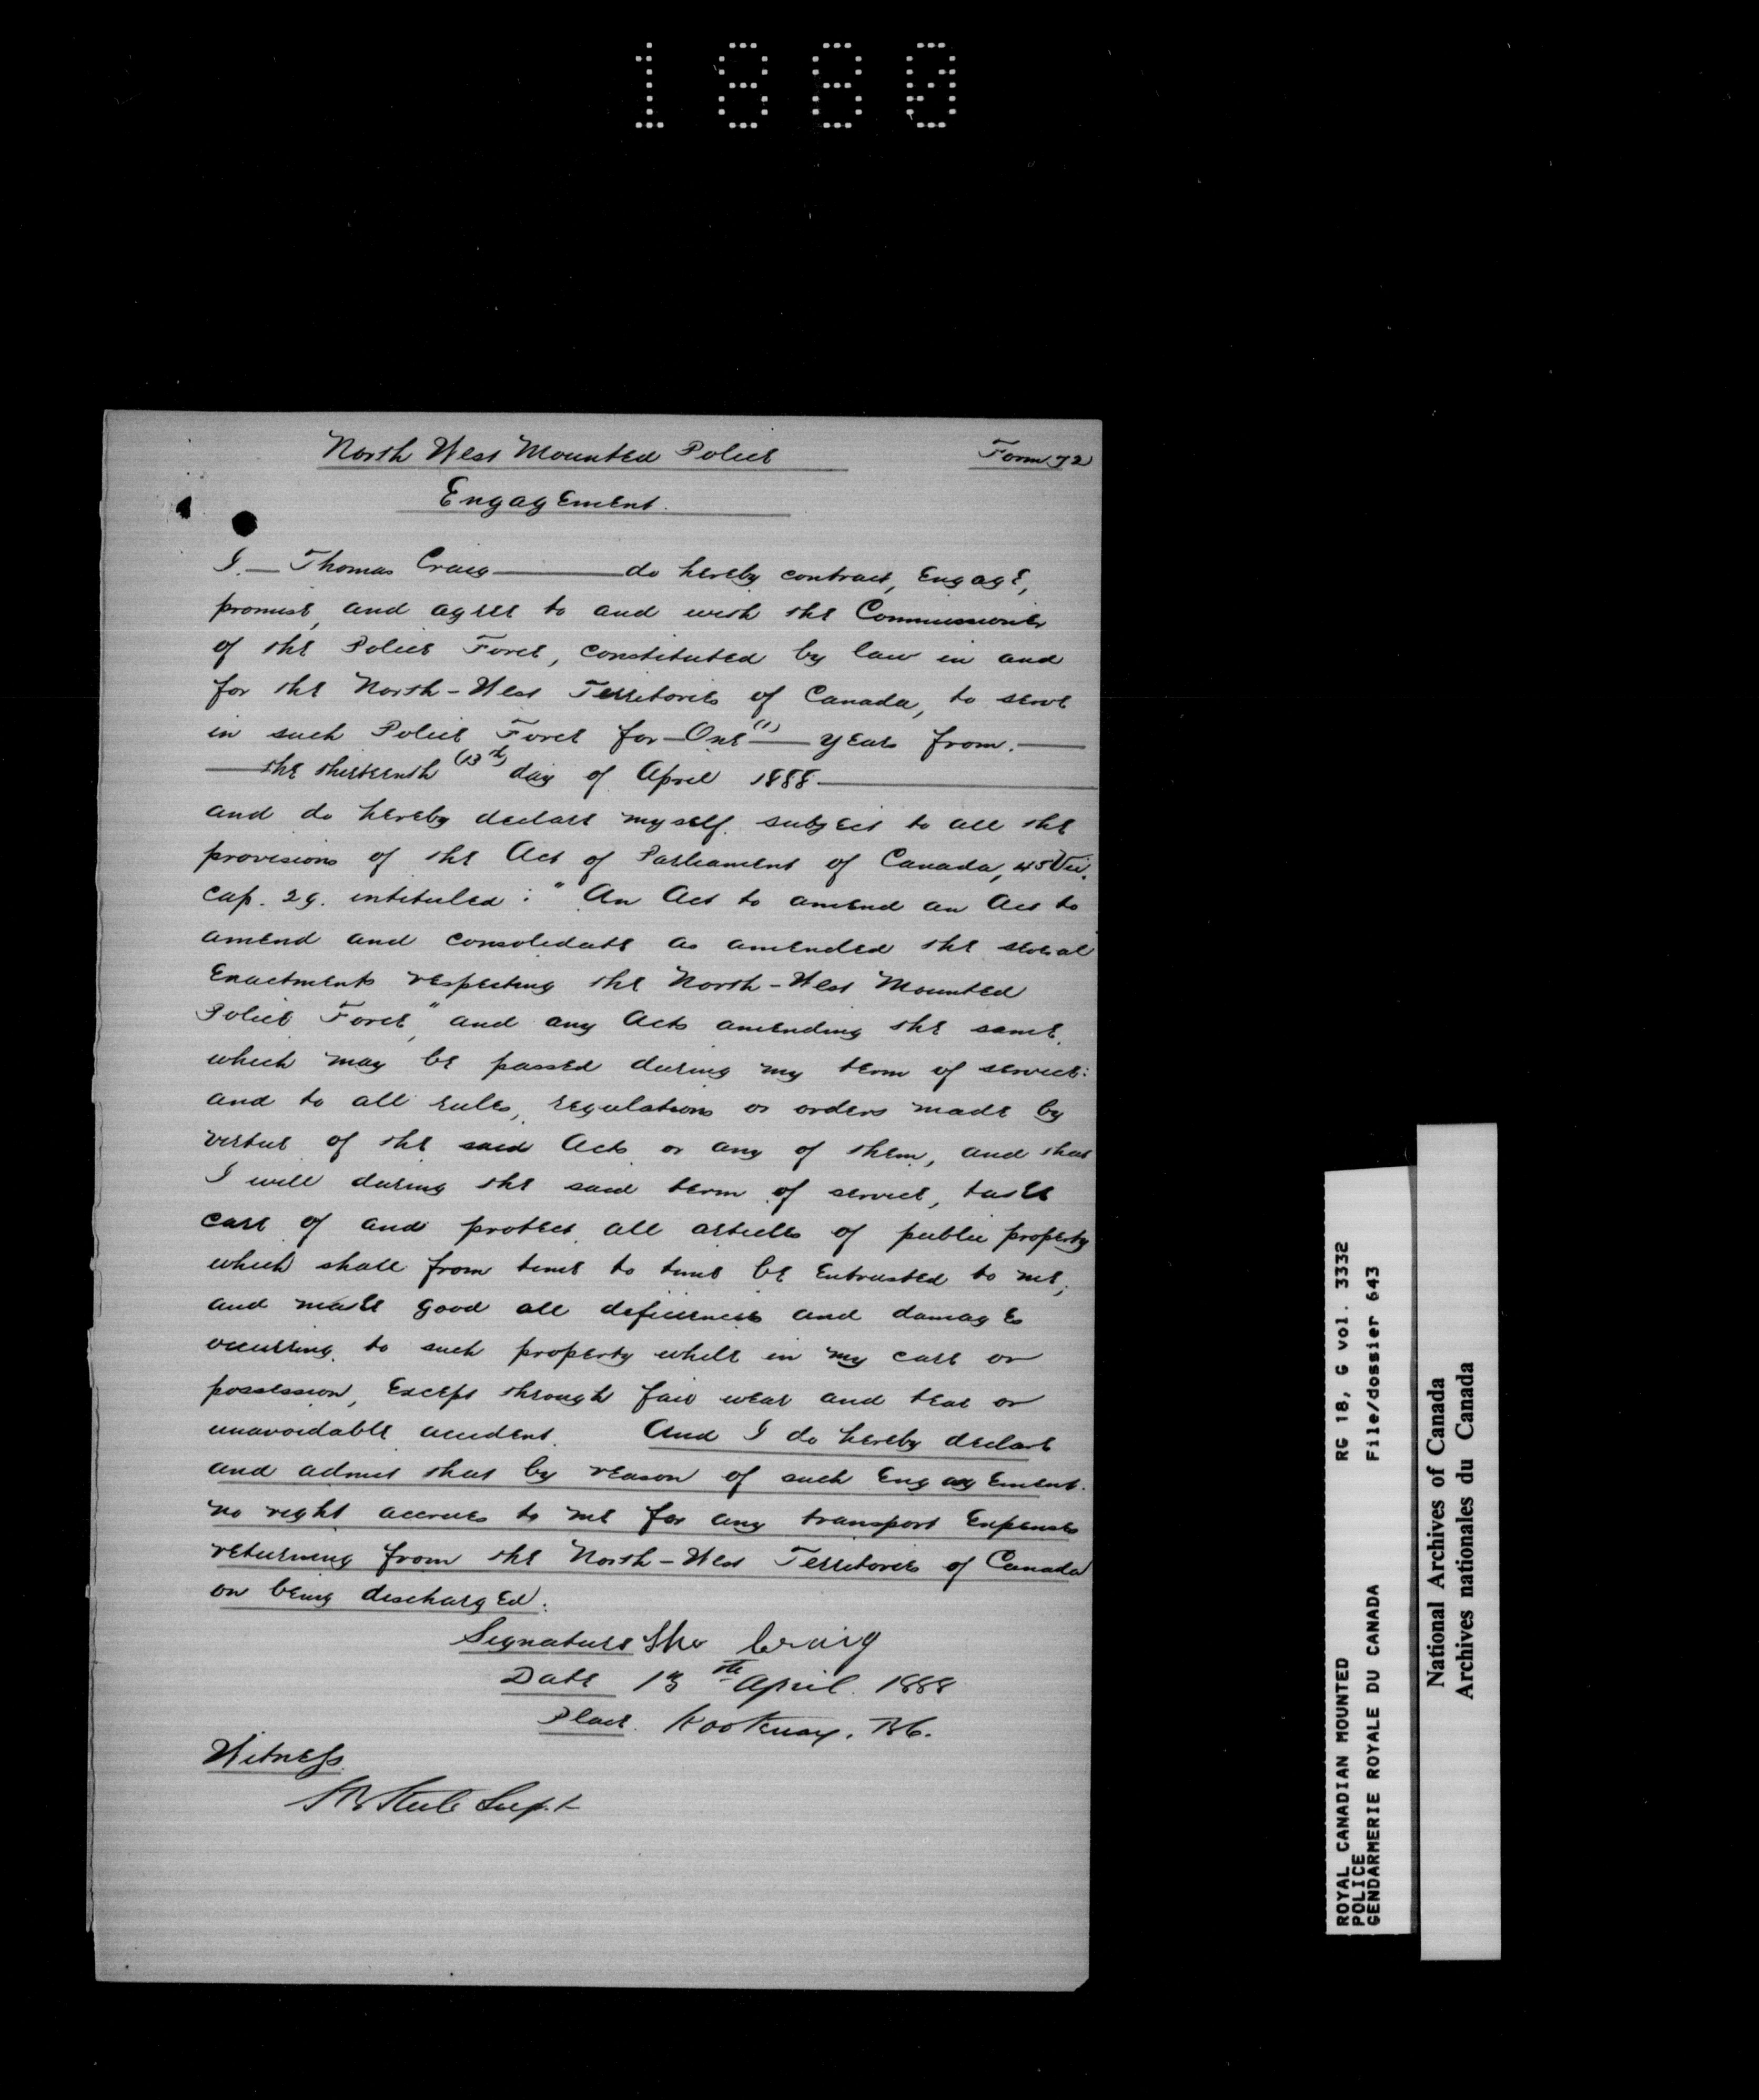 1880
North West Mounted Police
Form 72
Engagement.
I. — Thomas Craig — do hereby contract, Engage,
promise, and agree to and with the Commissioner
of the Police Force, constituted by law in and
for the North-West Territories of Canada, to serve
in such Police Force for — One (1) — years from. —
— the thirteenth (13th) day of April 1888 —
and do hereby declare myself subject to all the
provisions of the Act of Parliament of Canada, 45 Vic.
cap. 29. intituled: "An Act to amend an Act to
amend and consolidate as amended the several
Enactments respecting the North-West Mounted
Police Force," and any Acts amending the same,
which may be passed during my term of service:
and to all rules, regulations or orders made by
virtue of the said Acts or any of them, and that
I will during the said term of service, take
care of and protect all articles of public property
which shall from time to time be Entrusted to me,
and make good all deficiencies and damages
occurring to such property while in my care or
possession, Except through fair wear and tear or
unavoidable accident. And I do hereby declare
and admit that by reason of such Engagement.
no right accrues to me for any transport Expenses
returning from the North-West Territories of Canada
on being discharged.
Signature Tho Craig
Date 13th April. 1888
Place. Kootenay. B.C.
Witness
S B Steele Supt
ROYAL CANADIAN MOUNTED RG 18, G vol. 3332
POLICE
GENDARMERIE ROYALE DU CANADA File/dossier 643
National Archives of Canada
Archives nationales du Canada